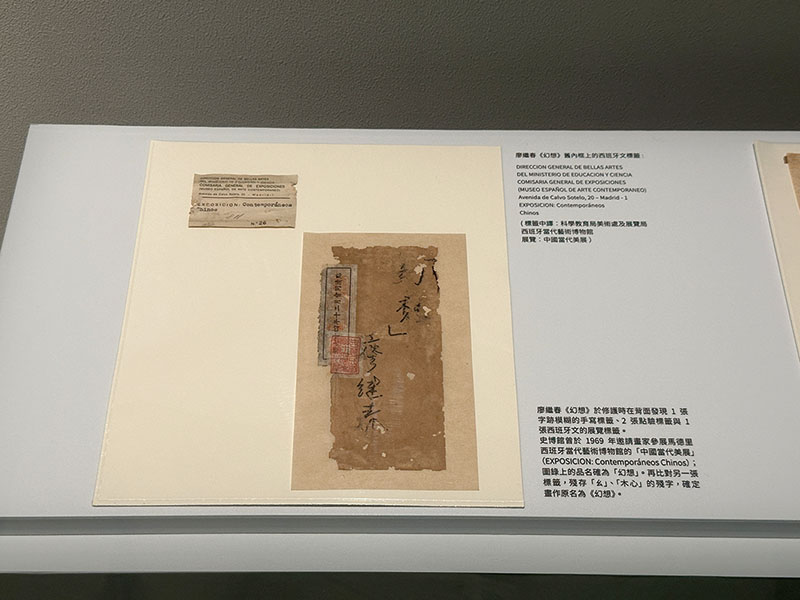 廖繼春《幻想》舊內框上的西班牙文標籤:
DIRECCION GENERAL DE BELLAS ARTES
DEL MINISTERIO DE EDUCACION Y CIENCIA
COMISARIA GENERAL DE EXPOSICIONES
(MUSEO ESPAÑOL DE ARTE CONTEMPORANEO)
Avenida de Calvo Sotelo, 20 – Madrid - 1
EXPOSICION: Contemporáneos
Chinos
(標籤中譯:科學教育局美術處及展覽局
西班牙當代藝術博物館
展覽:中國當代美展)
廖繼春《幻想》於修護時在背面發現 1 張
字跡模糊的手寫標籤、2 張點驗標籤與 1
張西班牙文的展覽標籤。
史博館曾於 1969 年邀請畫家參展馬德里
西班牙當代藝術博物館的「中國當代美展」
(EXPOSICION: Contemporáneos Chinos);
圖錄上的品名確為「幻想」。再比對另一張
標籤,殘存「幺」、「木心」的殘字,確定
畫作原名為《幻想》。
DIRECCION GENERAL DE BELLAS ARTES
DEL MINISTERIO DE EDUCACION Y CIENCIA
COMISARIA GENERAL DE EXPOSICIONES
(MUSEO ESPAÑOL DE ARTE CONTEMPORANEO)
Avenida de Calvo Sotelo, 20 – Madrid - 1
EXPOSICION: Contemporáneos
Chinos
Nº 26
」
廖繼春